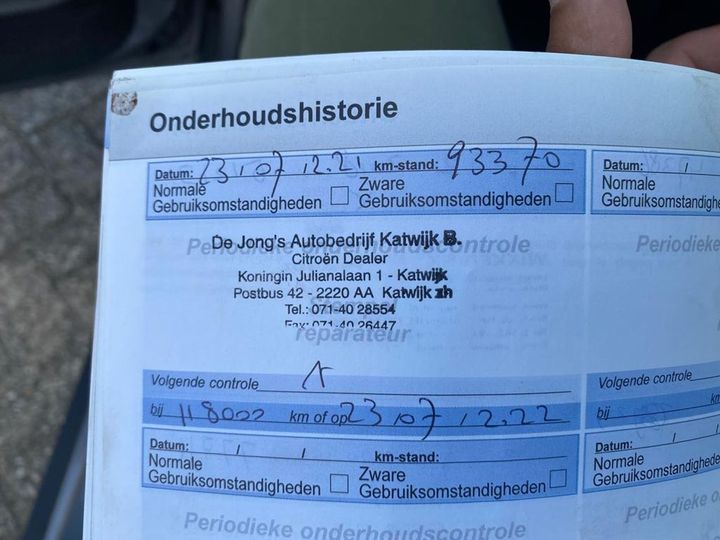 Onderhoudshistorie
Datum: 23.07.12.21 km-stand: 93370
Normale
Gebruiksomstandigheden
Zware
Gebruiksomstandigheden
De Jong's Autobedrijf Katwijk B.
Citroën Dealer
Koningin Julianalaan 1 - Katwijk
Postbus 42 - 2220 AA Katwijk zh
Tel.: 071-40 28554
Fax: 071-40 26447
Periodieke onderhoudscontrole
Stempel
reparateur
Volgende controle
bij 118000 km of op 23.07.12.22
Datum: / / km-stand:
Normale
Gebruiksomstandigheden
Zware
Gebruiksomstandigheden
Periodieke onderhoudscontrole
Datum: /
Normale
Gebruiksomstandighe
Periodieke
Volgende controle
bij km
Datum: / /
Normale
Gebruiksomstandigheden
Periodieke o